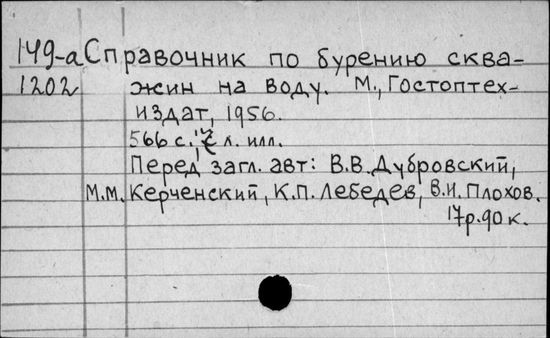 149-а Справочник по бурению сква-
1202 жин на воду. М., Гостоптех-
издат, 1956.
566 с., л. илл.
Перед загл. авт: В.В. Дубровский,
М.М. Керченский, К.П. Лебедев, В.И. Плохов.
17р.90к.